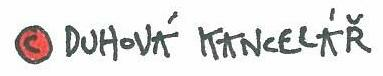 © DUHOVÁ KANCELÁŘ